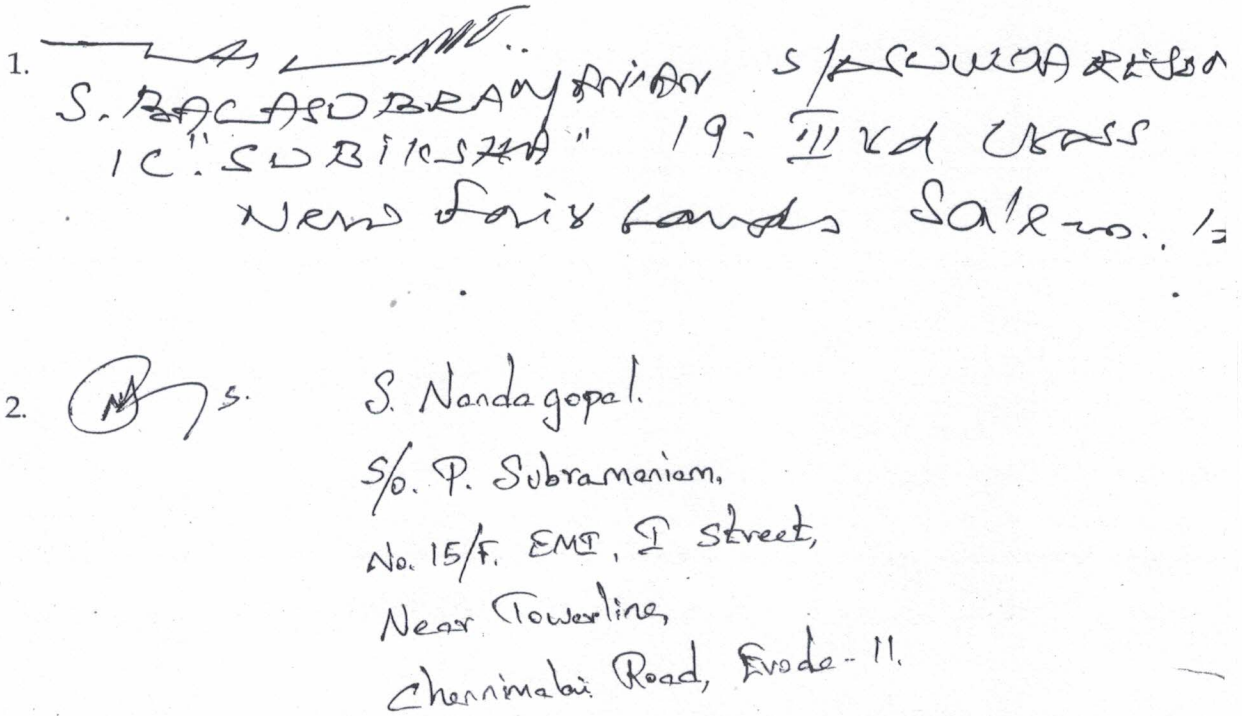 1.
S. BALASUBRAMANIAN S/o SUNDARESAN
1C. "SUBIKSHA" 19. III rd Cross
New Fair Lands Salem..
2. S. S. Nandagopal.
S/o. P. Subramaniam,
No. 15/F. EMI, I Street,
Near Towerline,
Chennimalai Road, Erode - 11.